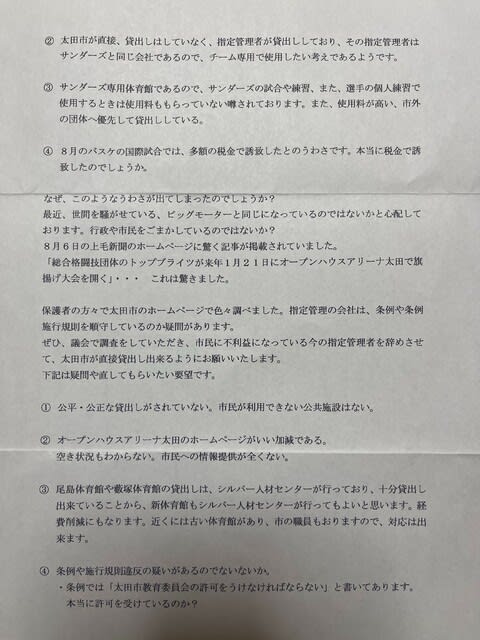 ② 太田市が直接、貸出しはしていなく、指定管理者が貸出ししており、その指定管理者は
サンダーズと同じ会社であるので、チーム専用で使用したい考えであるようです。
③ サンダーズ専用体育館であるので、サンダーズの試合や練習、また、選手の個人練習で
使用するときは使用料ももらっていない噂されております。また、使用料が高い、市外
の団体へ優先して貸出ししている。
④ 8月のバスケの国際試合では、多額の税金で誘致したとのうわさです。本当に税金で誘
致したのでしょうか。
なぜ、このようなうわさが出てしまったのでしょうか？
最近、世間を騒がせている、ビッグモーターと同じになっているのではないかと心配して
おります。行政や市民をごまかしているのではないか？
８月６日の上毛新聞のホームページに驚く記事が掲載されていました。
「総合格闘技団体のトップブライツが来年１月２１日にオープンハウスアリーナ太田で旗
揚げ大会を開く」・・・ これは驚きました。
保護者の方々で太田市のホームページで色々調べました。指定管理の会社は、条例や条例
施行規則を順守しているのか疑問があります。
ぜひ、議会で調査をしていただき、市民に不利益になっている今の指定管理者を辞めさせ
て、太田市が直接貸出し出来るようにお願いいたします。
下記は疑問や直してもらいたい要望です。
① 公平・公正な貸出しがされていない。市民が利用できない公共施設はない。
② オープンハウスアリーナ太田のホームページがいい加減である。
空き状況もわからない。市民への情報提供が全くない。
③ 尾島体育館や藪塚体育館の貸出しは、シルバー人材センターが行っており、十分貸出し
出来ていることから、新体育館もシルバー人材センターが行ってもよいと思います。経
費削減にもなります。近くには古い体育館があり、市の職員もおりますので、対応は出
来ます。
④ 条例や施行規則違反の疑いがあるのでないないか。
・条例では「太田市教育委員会の許可をうけなければならない」と書いてあります。
本当に許可を受けているのか？